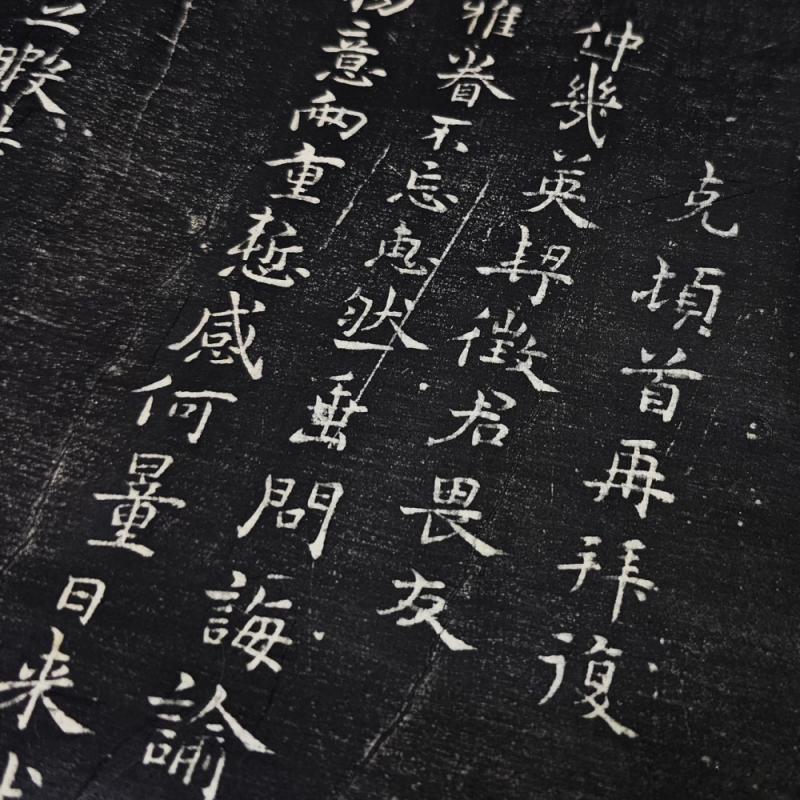 克頓首再拜復
仲幾英契徵君畏友
雅眷不忘惠然垂問誨諭
意兩重慙感何量日来
之暇